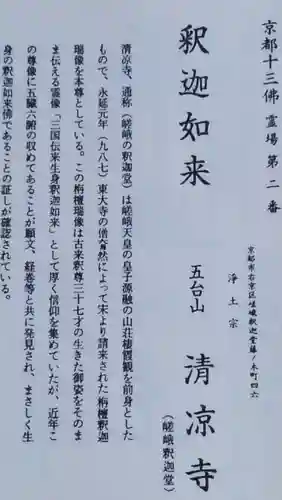 京都十三佛霊場第二番
釈迦如来
京都市右京区嵯峨釈迦堂藤ノ木町四六
浄土宗
五台山 清凉寺
(嵯峨釈迦堂)
清凉寺、通称(嵯峨の釈迦堂)は嵯峨天皇の皇子源融の山荘棲霞観を前身とした
もので、永延元年(九八七)東大寺の僧奝然によって宋より請来された栴檀釈迦
瑞像を本尊としている。この栴檀瑞像は古来釈尊三十七才の生きた御姿をそのま
ま伝える霊像「三国伝来生身釈迦如来」として厚く信仰を集めていたが、近年こ
の尊像に五臓六腑の収めてあることが願文、経巻等と共に発見され、まさしく生
身の釈迦如来佛であることの証しが確認されている。